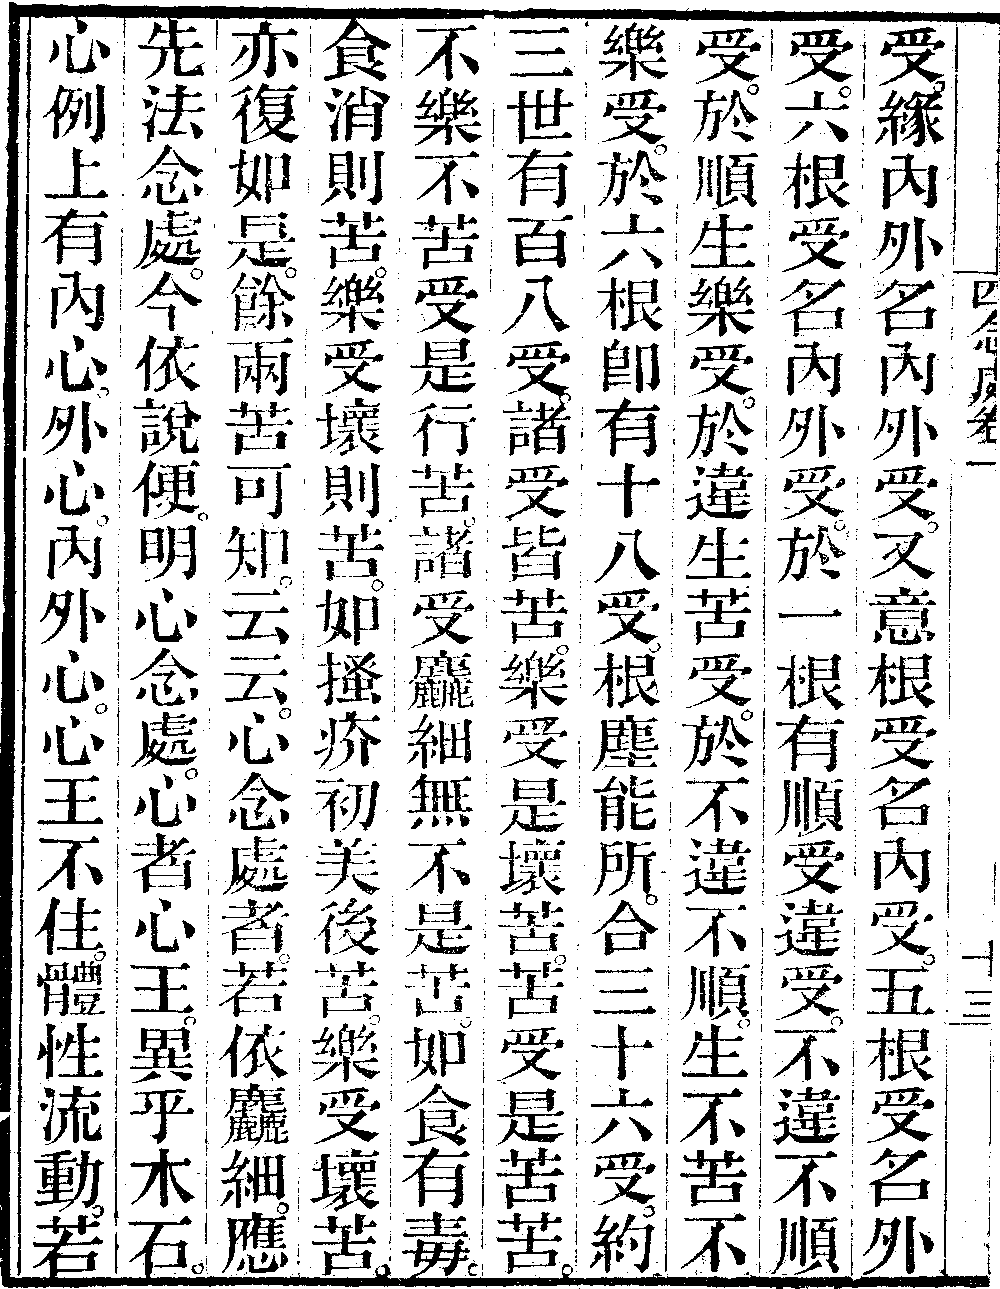 四念處卷一 十三
受。緣內外名內外受。又意根受名內受。五根受名外
受。六根受名內外受。於一根有順受違受。不違不順
受。於順生樂受。於違生苦受。於不違不順。生不苦不
樂受。於六根卽有十八受。根塵能所。合三十六受。約
三世有百八受。諸受皆苦。樂受是壞苦。苦受是苦苦。
不樂不苦受是行苦。諸受麤細無不是苦。如食有毒。
食消則苦。樂受壞則苦。如搔疥初美後苦。樂受壞苦。
亦復如是。餘兩苦可知。云云。心念處者。若依麤細。應
先法念處。今依說便。明心念處。心者心王。異乎木石。
心例上有內心。外心。內外心。心王不住。體性流動。若